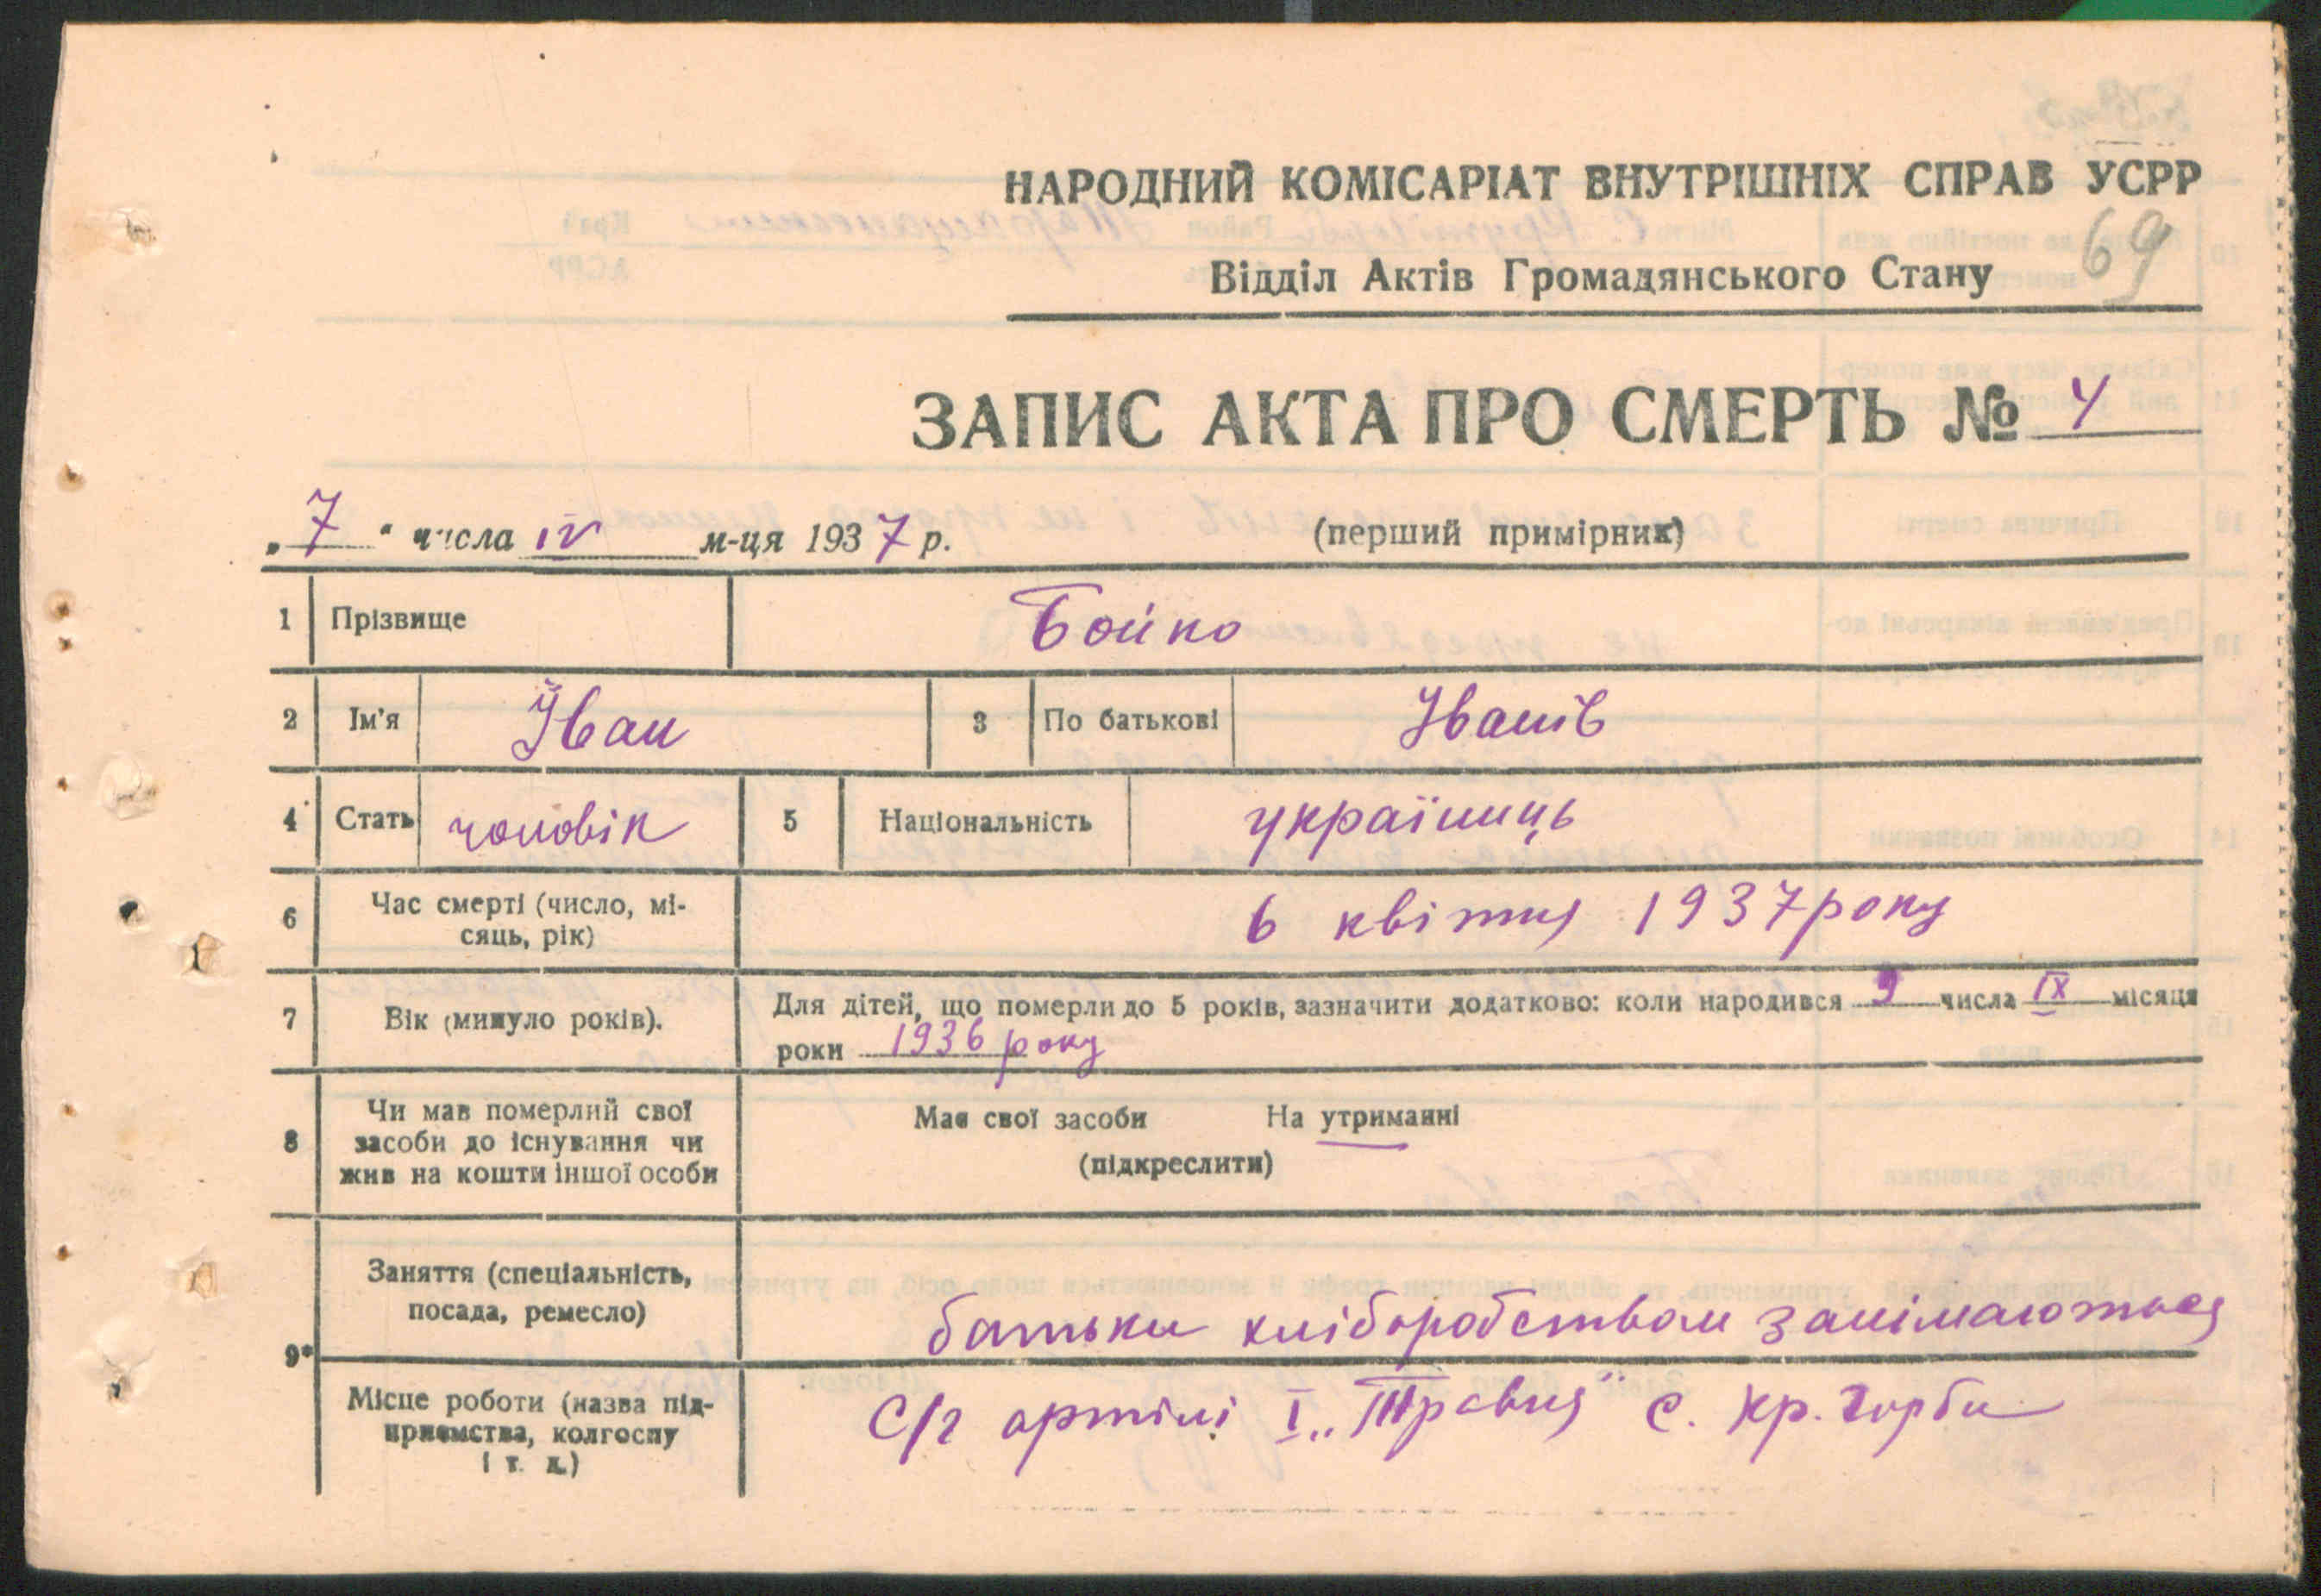 НАРОДНИЙ КОМІСАРІАТ ВНУТРІШНІХ СПРАВ УСРР
69
Відділ Актів Громадянського Стану
ЗАПИС АКТА ПРО СМЕРТЬ № 4
„7“ числа IV м-ця 1937 р. (перший примірник)
1 Прізвище Бойко
2 Ім'я Іван 3 По батькові Іванів
4 Стать чоловік 5 Національність україниць
6 Час смерті (число, мі-
сяць, рік) 6 квітня 1937 року
7 Вік (минуло років). Для дітей, що померли до 5 років, зазначити додатково: коли народився 9 числа IX місяця
роки 1936 року
8 Чи мав померлий свої
засоби до існування чи
жив на кошти іншої особи
Має свої засоби На утриманні
(підкреслити)
9* Заняття (спеціальність,
посада, ремесло) батьки хліборобством занімаються
Місце роботи (назва під-
приємства, колгоспу
і т. д.)
С/г артілі I „Травня" с. Кр. Горби